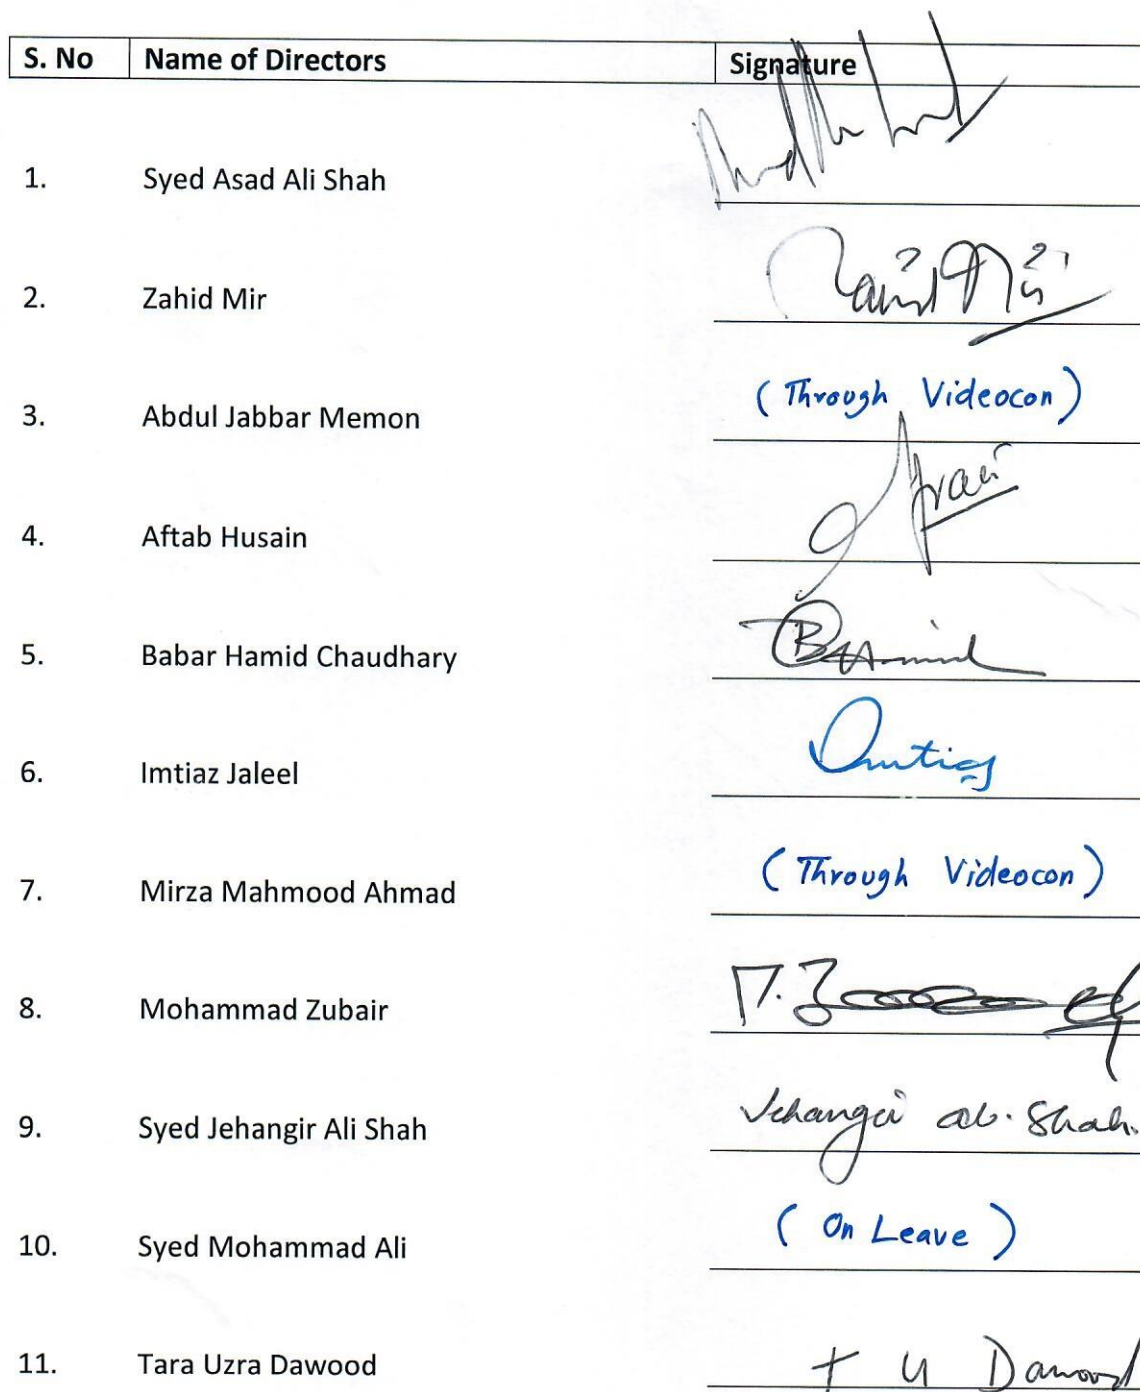 S. No Name of Directors Signature
1. Syed Asad Ali Shah
2. Zahid Mir Zahid Mir
3. Abdul Jabbar Memon (Through Videocon)
4. Aftab Husain
5. Babar Hamid Chaudhary BHamid
6. Imtiaz Jaleel Imtiaz
7. Mirza Mahmood Ahmad (Through Videocon)
8. Mohammad Zubair
9. Syed Jehangir Ali Shah Jehangir Ali Shah.
10. Syed Mohammad Ali (On Leave)
11. Tara Uzra Dawood T U Dawood